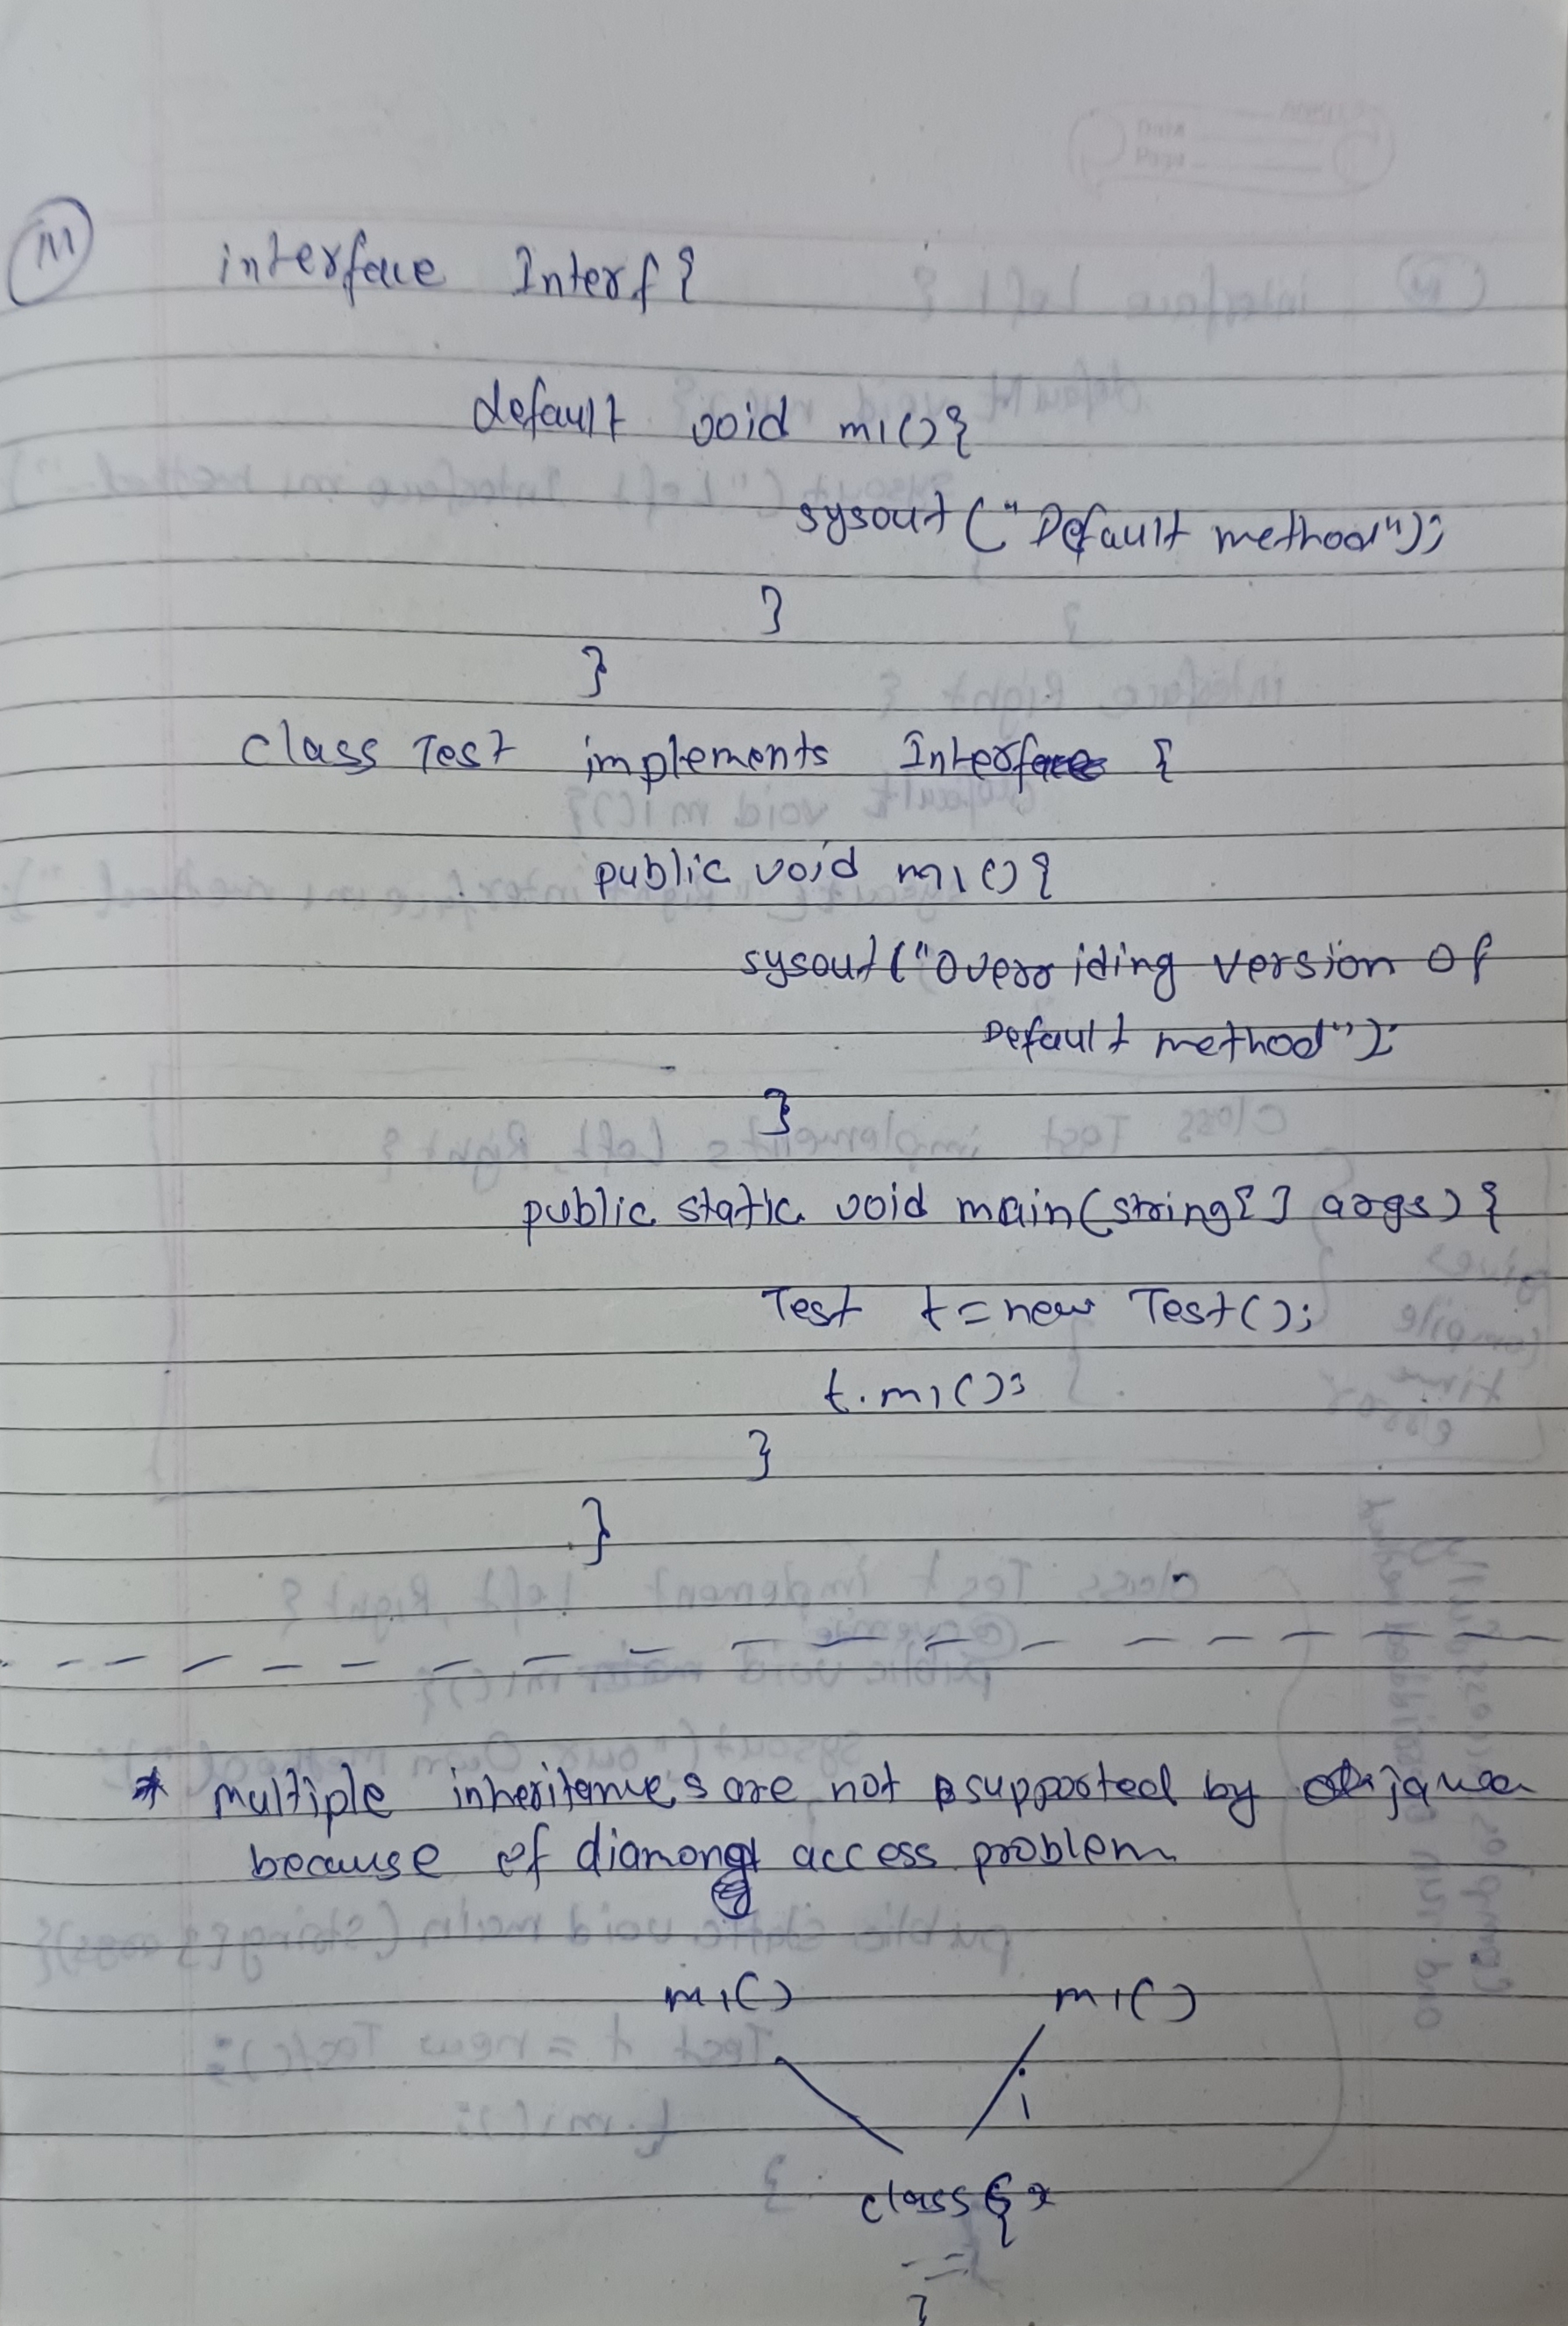 III
interface Interf {
default void m1() {
sysout ("Default method");
}
}
class Test implements Interf {
public void m1() {
sysout ("Overriding version of
Default method");
}
public static void main(string[] args) {
Test t = new Test();
t.m1();
}
}
* multiple inheritances are not supported by java
because of diamond access problem
m1() m1()
class {
}